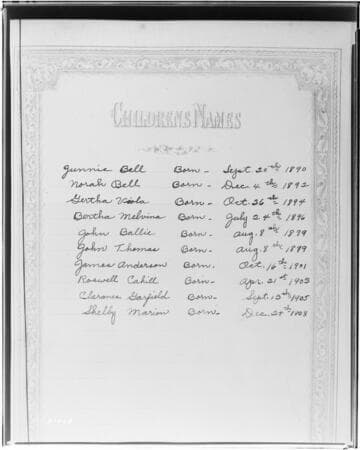 CHILDRENS NAMES
Junnie Bell Born - Sept. 20th 1890
Norah Bell Born - Dec. 4th 1892
Gertha Viola Born - Oct. 26th 1894
Bertha Melvina Born - July 24th 1896
John Ballie Born - Aug. 8th 1899
John Thomas Born - Aug. 8th 1899
James Anderson Born. Oct. 16th 1901
Roswell Cahill Born - Apr. 21st 1903
Clarence Garfield Born - Sept. 12th 1905
Shelby Marion Born - Dec. 1908